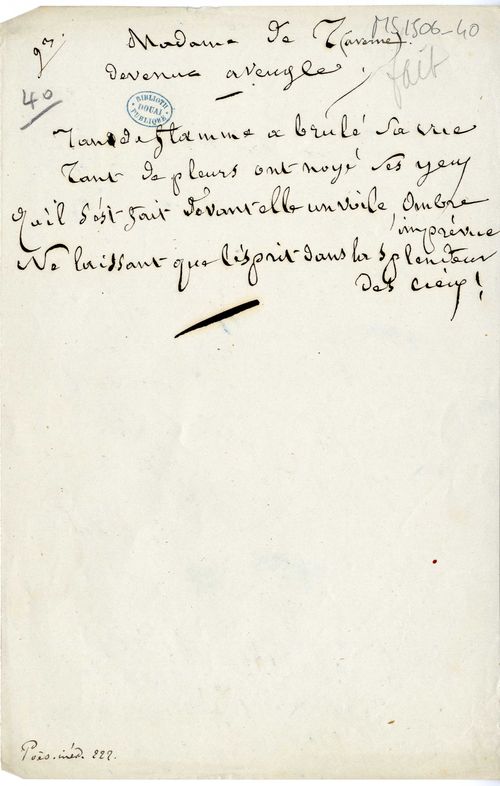 97.
Madame de T(arame).
MS 1506-40
devenue aveugle.
fait
40
BIBLIOTH.
DOUAI
PUBLIQUE
Tant de flamme a brulé sa vie
Tant de pleurs ont noyé ses yeux
Qu'il s'est fait devant elle un voile, ombre
imprévue
Ne laissant que l'esprit dans la splendeur
des cieux !
Poés. inéd. 222.